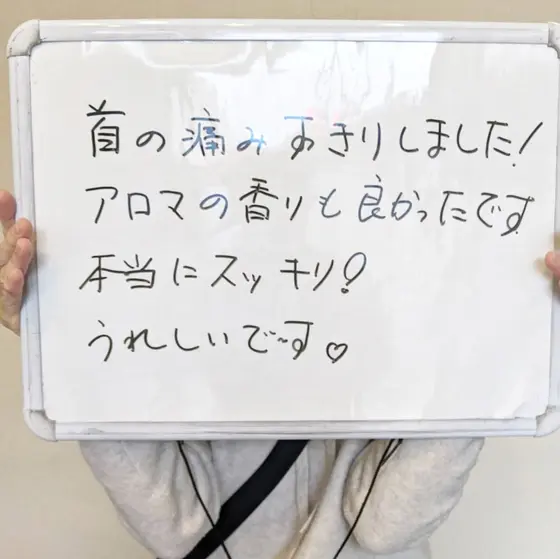 首の痛みすきりしました!
アロマの香りも良かったです
本当にスッキリ!
うれしいで〜す♡